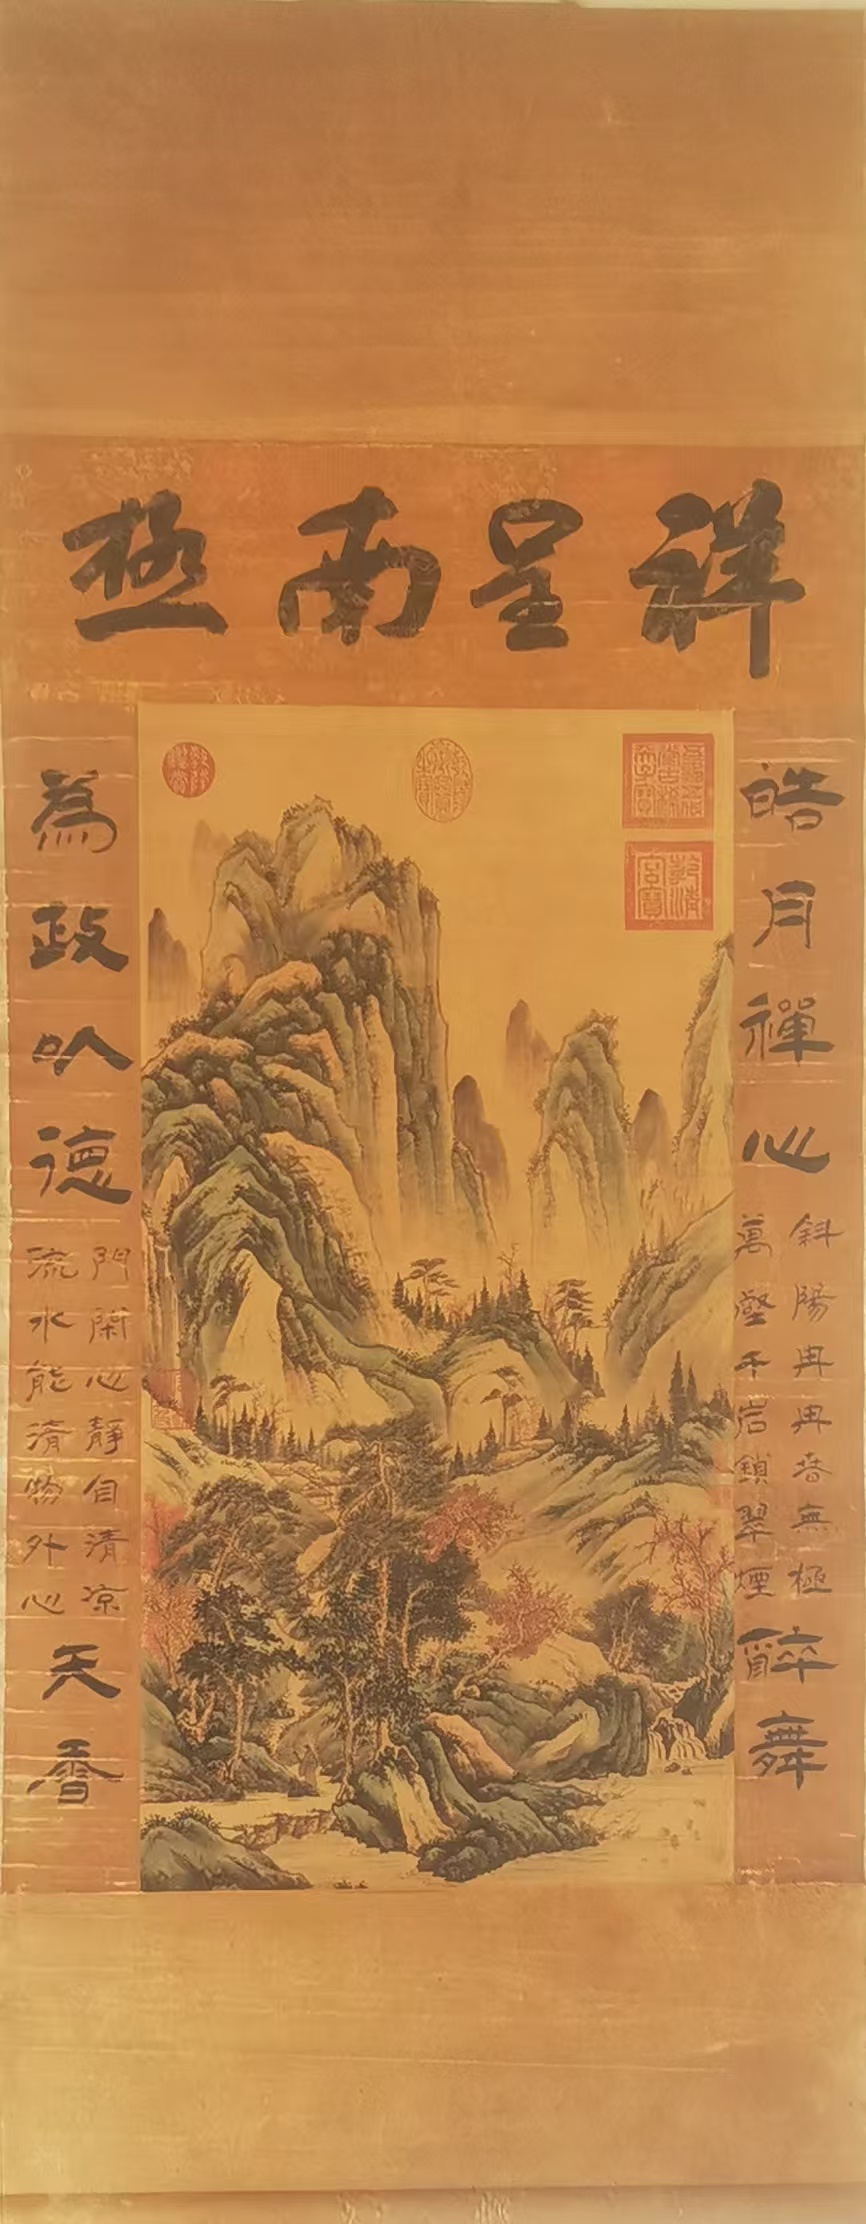 祥呈南極
皓月禪心
斜陽冉冉春無極
萬壑千岩鎖翠煙
醉舞
為政以德
門閑心靜自清涼
流水能清物外心
天香